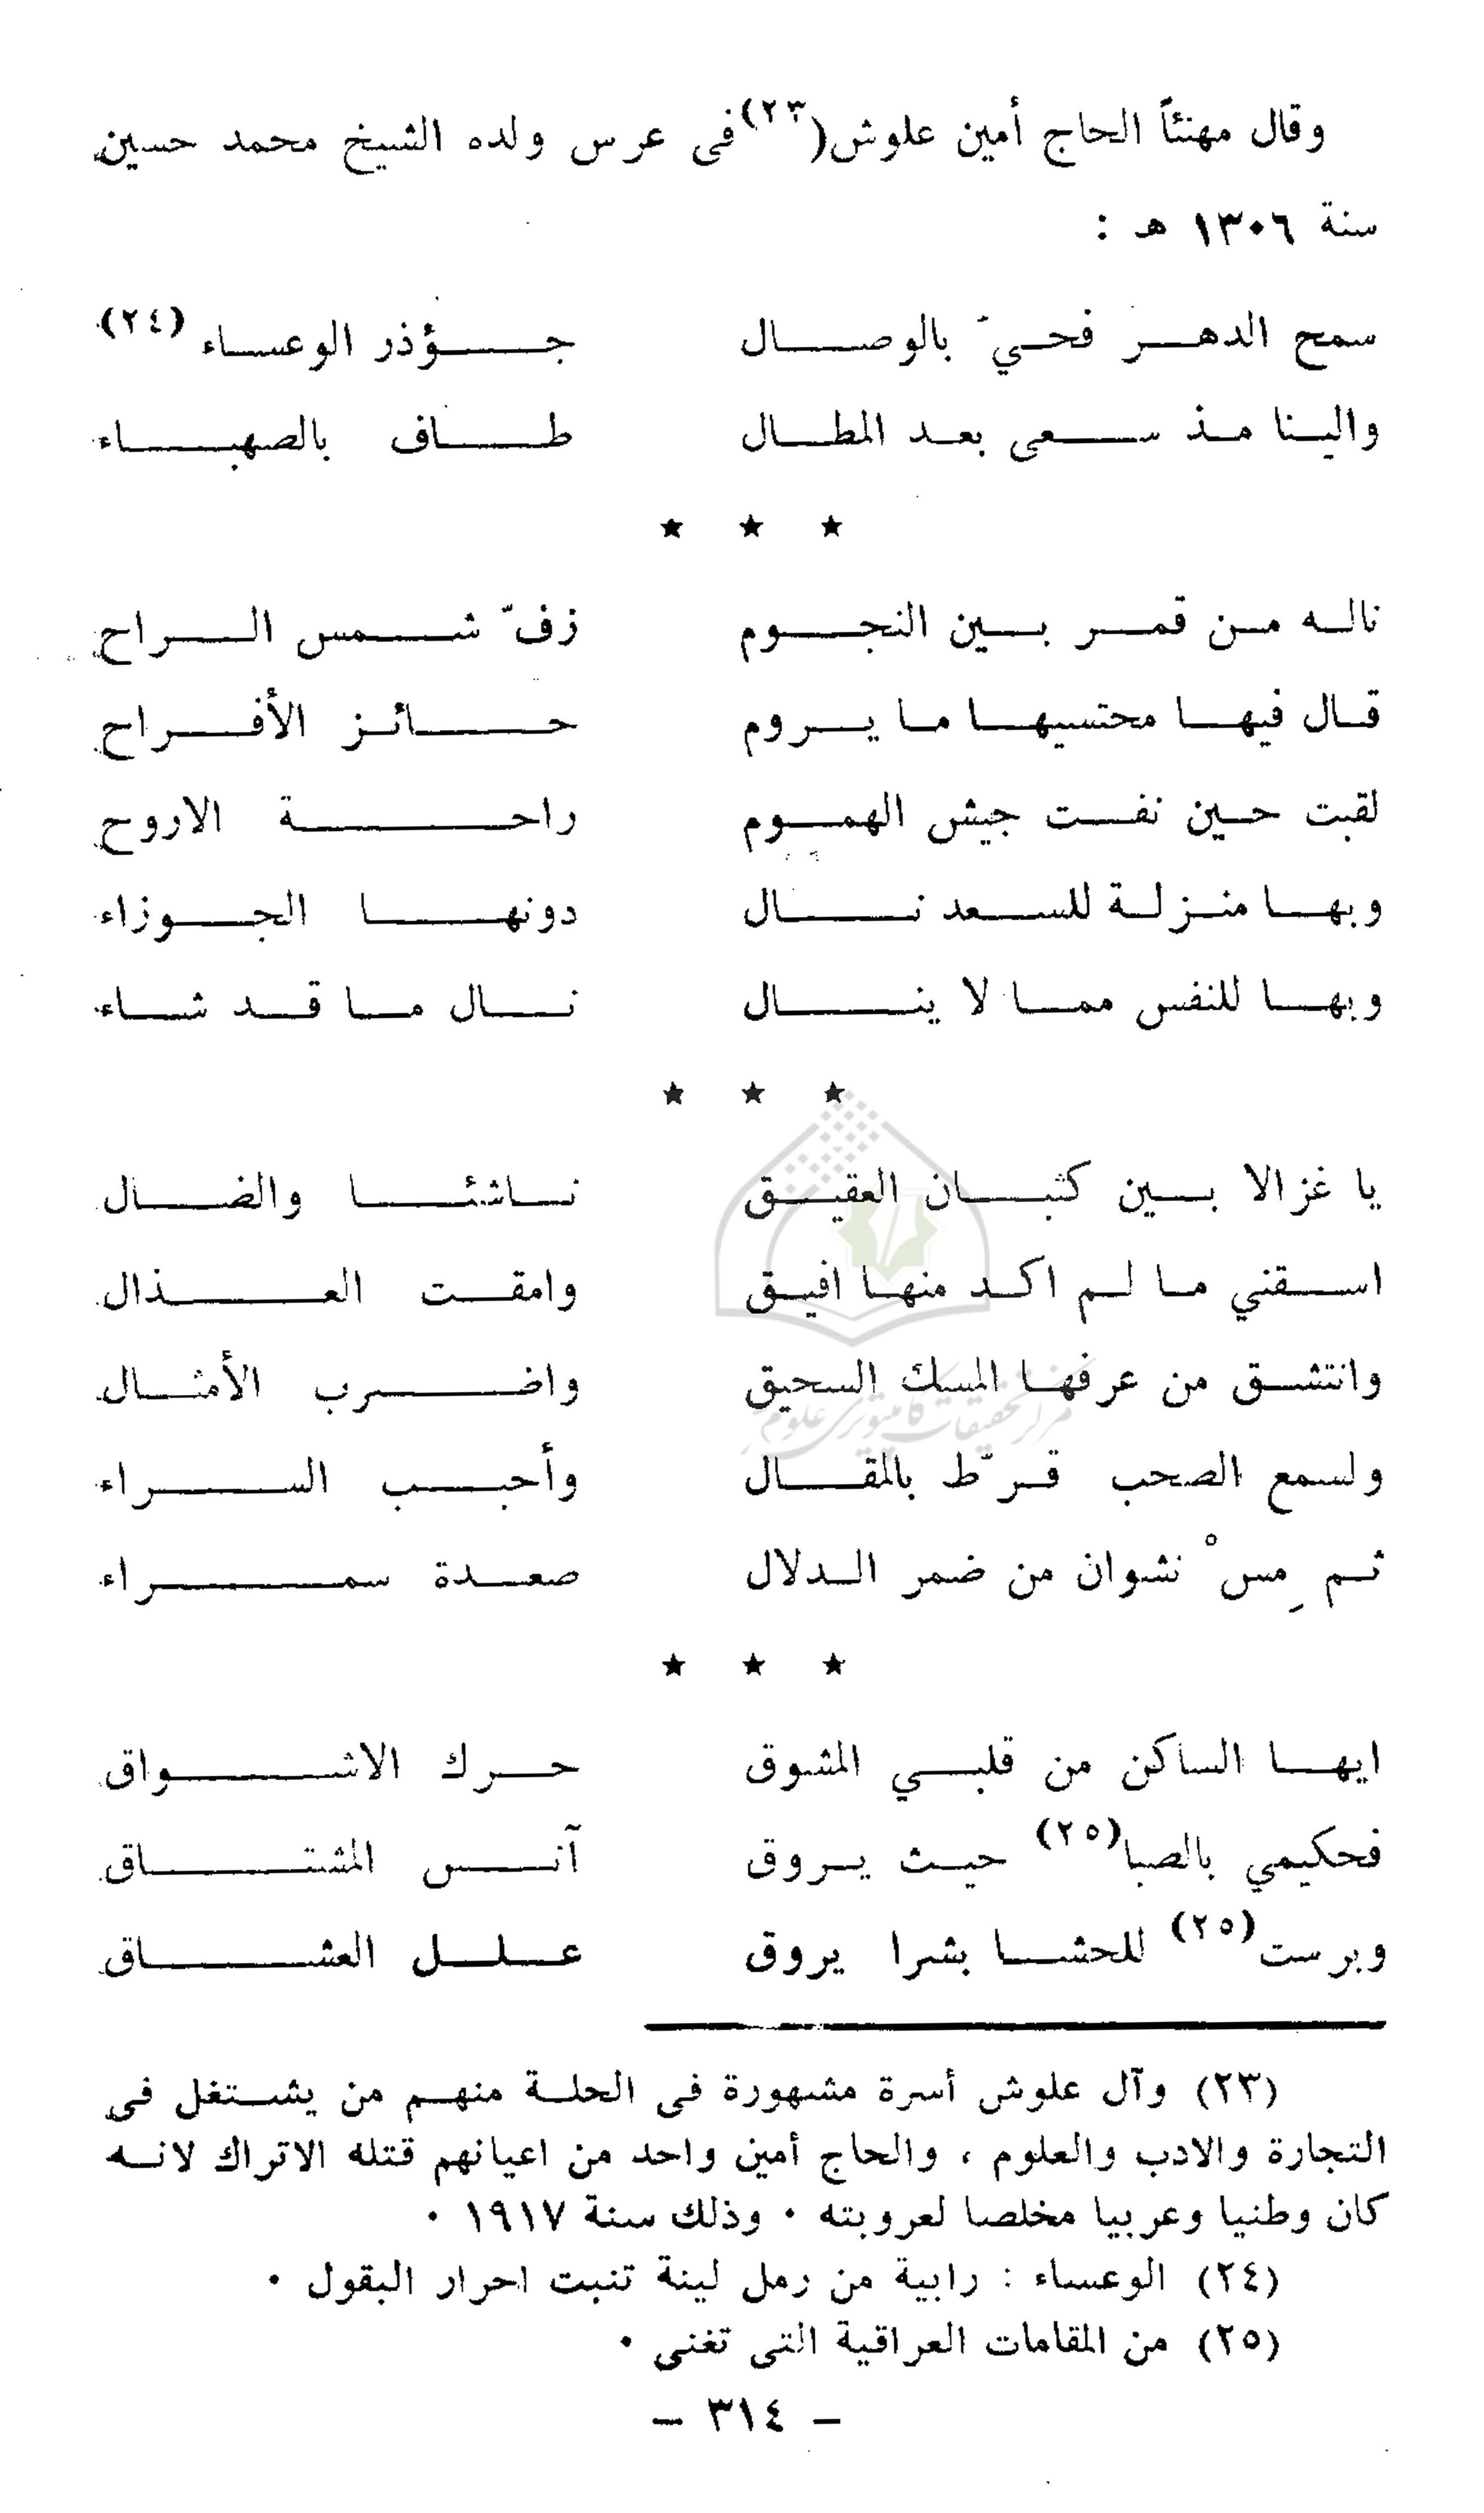 وقال مهنئاً الحاج أمين علوش(٢٣) فى عرس ولده الشيخ محمد حسين
سنة ١٣٠٦ هـ :
سمح الدهر فحيَ بالوصال جؤذر الوعساء (٢٤)
والينا مذ سعى بعد المطال طاف بالصهباء
★ ★ ★
ناله من قمر بين النجوم زفّ شمس الراح
قال فيها محتسيها ما يروم حائز الأفراح
لقبت حين نفت جيش الهموم راحة الاروح
وبها منزلة للسعد نال دونها الجوزاء
وبها للنفس مما لا ينال نال ما قد شاء
★ ★ ★
يا غزالا بين كثبان العقيق ناشئا والضال
اسقني ما لم اكد منها افيق وامقت العذال
وانتشق من عرفها المسك السحيق واضرب الأمثال
ولسمع الصحب قرّط بالمقال وأحبب السراء
ثم مِسْ نشوان من ضمر الدلال صعدة سمراء
★ ★ ★
ايها الساكن من قلبي المشوق حرك الاشواق
فحكيمي بالصبا(٢٥) حيث يروق آنس المشتاق
وبرست(٢٥) للحشا بشرا يروق علل العشاق
(٢٣) وآل علوش أسرة مشهورة فى الحلة منهم من يشتغل فى
التجارة والادب والعلوم ، والحاج أمين واحد من اعيانهم قتله الاتراك لانه
كان وطنيا وعربيا مخلصا لعروبته . وذلك سنة ١٩١٧ .
(٢٤) الوعساء : رابية من رمل لينة تنبت احرار البقول .
(٢٥) من المقامات العراقية التى تغنى .
– ٣١٤ –
مركز تحقيقات كامپيوترى علوم